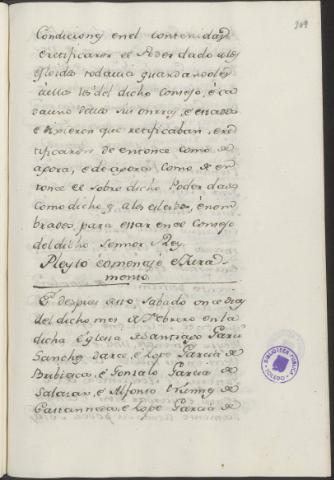 209
Condiciones en el contenidas,
e retificaron el Poder dado a los
esleidos todavia guardandoles
á ellos los del dicho Consejo, é ca
da uno dellos sus onrras, e estados
e dixieron que retificaban, e re
tificaron de entonce como de
agora, e de agora como de en
tonce el sobre dicho Poder dado
como dicho es a los esleidos, é nom
brados para estar en el Consejo
del dicho Sennor Rey.
Pleyto é omenaje é Jura-
mento.
E despues desto, Sabado once dias
del dicho mes de Febrero en la
dicha Eglesia de Santiago Garci
Sanchez Darce, e Lope Garcia de
é Gonzalo Garcia de
Salazar, e Alfonso de
e Lope Garcia de
BIBLIOTECA PUBLICA
TOLEDO